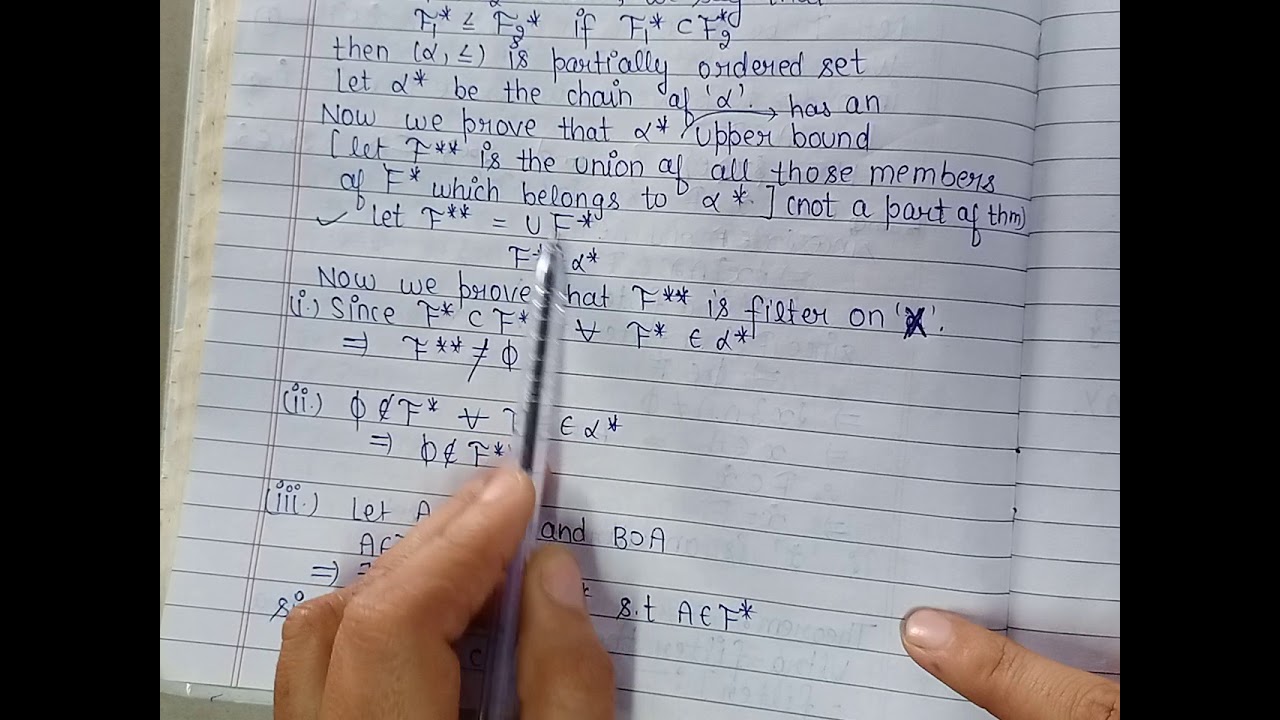 we say that
F₁* ≤ F₂* if F₁* ⊂ F₂*
then (α, ≤) is partially ordered set
Let α* be the chain of 'α'.
Now we prove that α* has an upper bound
[let F** is the union of all those members
of F* which belongs to α*.] (not a part of thm)
✓ let F** = ∪ F*
F* α*
Now we prove that F** is filter on 'X'.
(i.) Since F* ⊂ F* ∀ F* ∈ α*
⇒ F** ≠ ϕ
(ii.) ϕ ∉ F* ∀ ∈ α*
⇒ ϕ ∉ F*
(iii.) Let A and B⊃A
A∈
⇒ ∃
s.t A∈F*